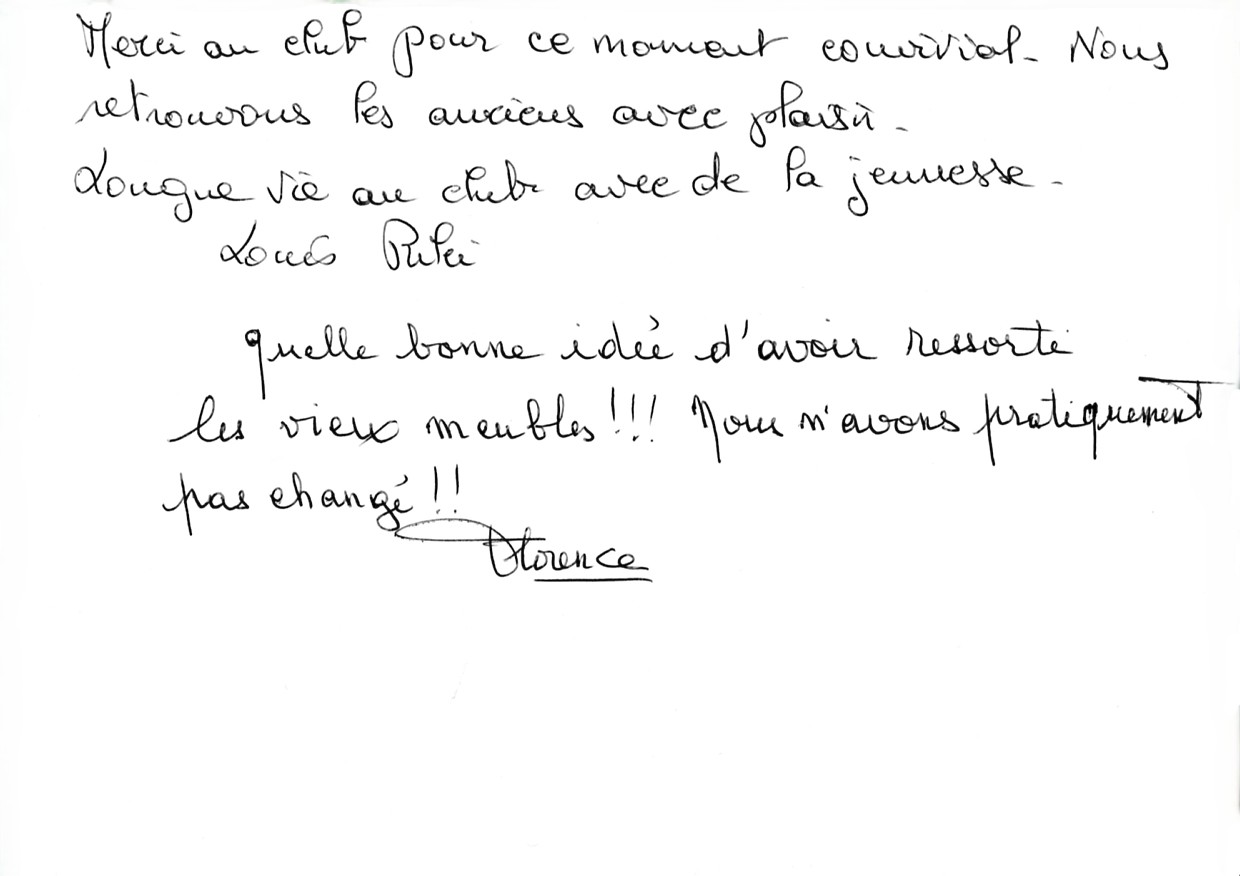 Merci au club pour ce moment convivial. Nous
retrouvons les anciens avec plaisir.
Longue vie au club avec de la jeunesse.
Louis
quelle bonne idée d'avoir ressorti
les vieux meubles!!! Nous n'avons pratiquement
pas changé!!
Florence